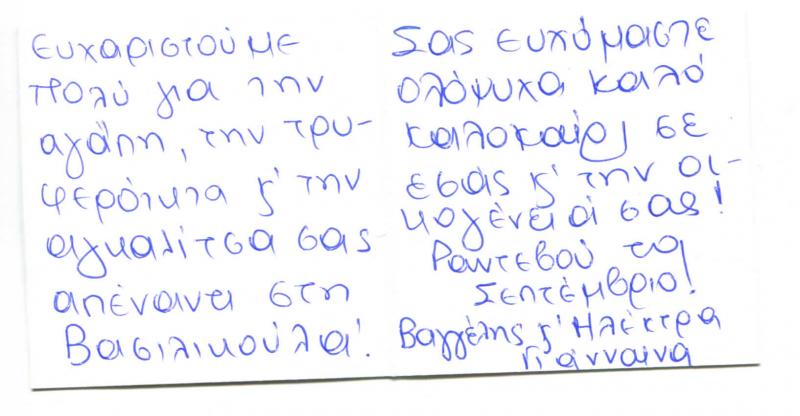 ευχαριστούμε
πολύ για την
αγάπη, την τρυ-
φερότητα κ' την
αγκαλίτσα σας
απέναντι στη
Βασιλικούλα!
Σας ευχόμαστε
ολόψυχα καλό
καλοκαίρι σε
εσάς κ' την οι-
κογένειά σας!
Ραντεβού το
Σεπτέμβριο!
Βαγγέλης κ' Ηλέκτρα
Γιάνναινα